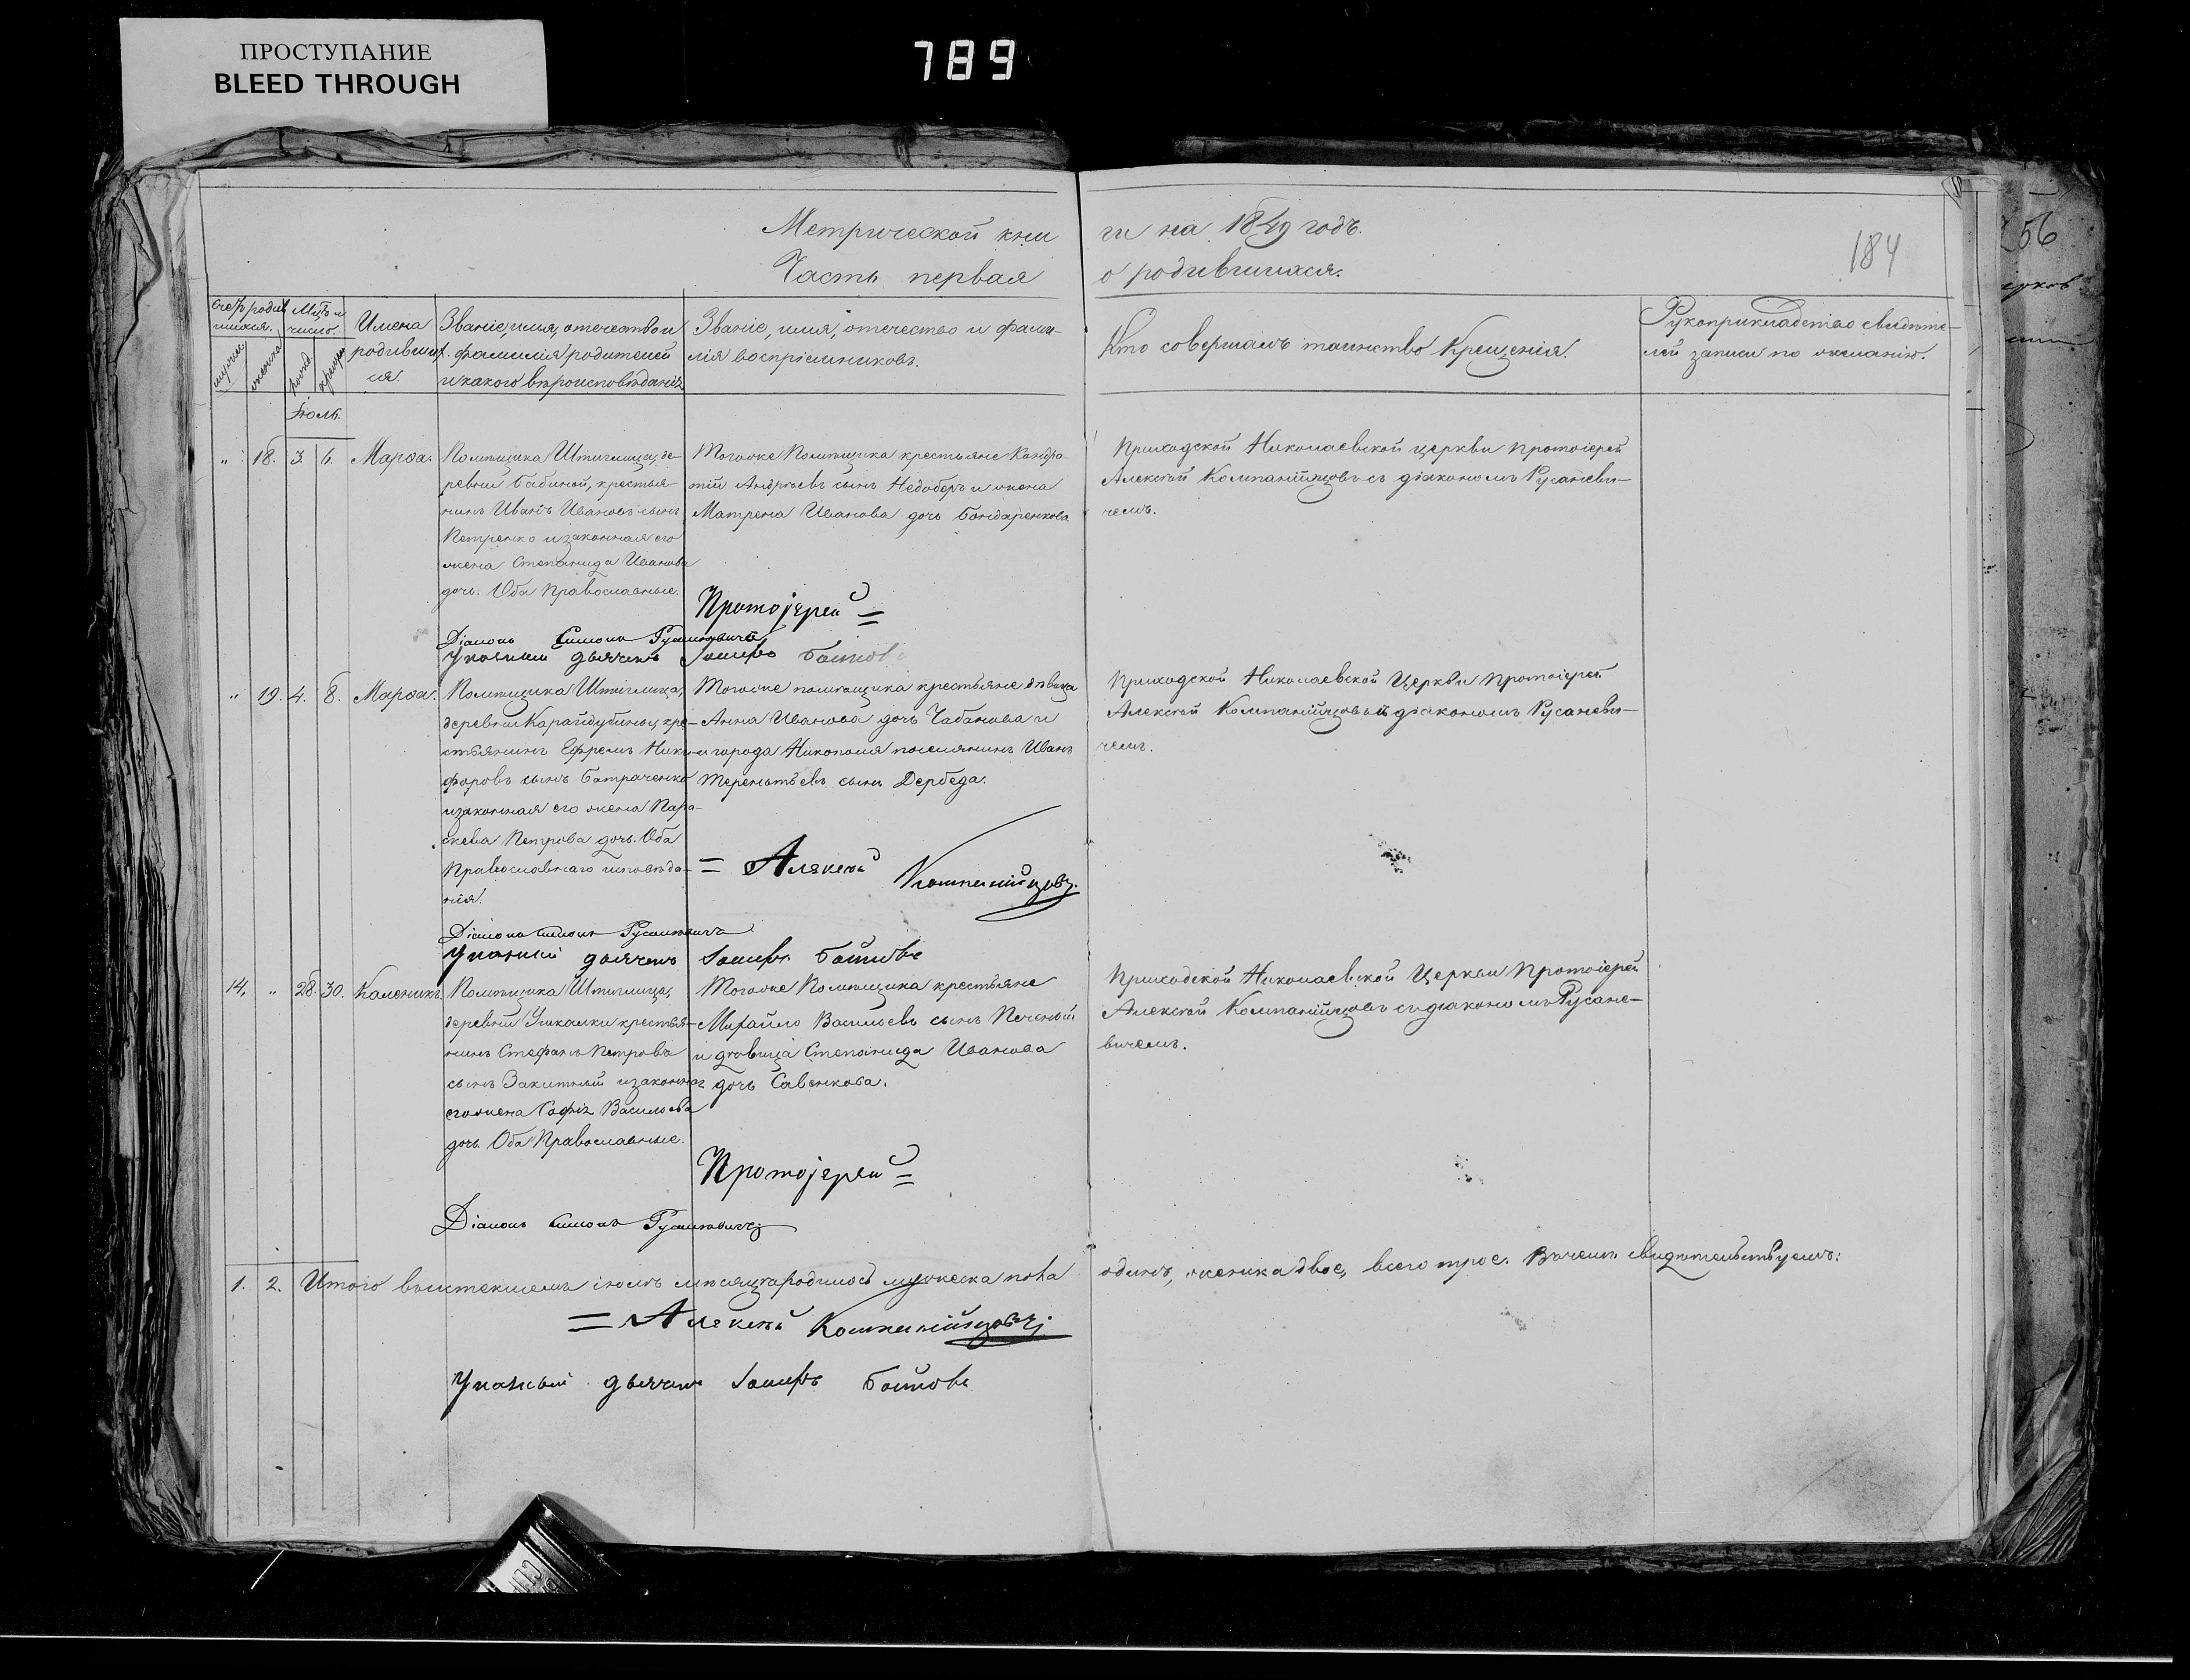 ПРОСТУПАНИЕ
BLEED THROUGH
789
Метрической кни
ги на 1849 годъ.
Часть первая
о родившихся.
184
256
Счетъ родив
шихся.
Мцъ и
число.
Имена
родивших
ся.
Званіе, имя, отечество и
фамилія родителей
и какого вѣроисповѣданія
Званіе, имя, отечество и фами-
лія воспріемниковъ.
Кто совершалъ таинство Крещенія.
Рукоприкладство свидѣте-
лей записи по желанію.
Іюль.
„ 18. 3. 6. Марѳа.
Помѣщика Штиглица, де-
ревни Бабиной, крестья-
нинъ Иванъ Ивановъ сынъ
Петренко и законная его
жена Степанида Иванова
дочь. Оба Православные.
Тогоже Помѣщика крестьяне Кондра-
тій Андреевъ сынъ Недоборъ и жена
Матрена Иванова дочь Бондаренкова
Приходской Николаевской церкви Протоіерей
Алексѣй Компанійцовъ съ діакономъ Русаневи-
чемъ.
Протоіерей =
Діаконъ Симонъ Русаневичъ
Указный дьячекъ Іосифъ
„ 19. 4. 8. Марѳа.
Помѣщика Штиглица,
деревни Карайдубины, кре-
стьянинъ Ефремъ Ники-
форовъ сынъ Батраченко
и законная его жена Пара-
скева Петрова дочь. Оба
Православнаго исповѣда-
нія.
Тогоже помѣщика крестьяне дѣвица
Анна Иванова дочь Чабанова и
и города Никополя поселянинъ Иванъ
Терентьевъ сынъ Дербеда.
Приходской Николаевской Церкви Протоіерей
Алексѣй Компанійцовъ съ діакономъ Русаневи-
чемъ.
= Алексѣй Компанійцовъ.
Діаконъ Симонъ Русаневичъ
Указный дьячекъ Іосифъ
14. „ 28. 30. Каленикъ.
Помѣщика Штиглица,
деревни Ушкалки крестья-
нинъ Стефанъ Петровъ
сынъ Закитный и законная
его жена Софія Васильева
дочь. Оба Православные.
Тогоже Помѣщика крестьяне
Михайло Васильевъ сынъ Печеный
и дѣвица Степанида Иванова
дочь Савенкова.
Приходской Николаевской Церкви Протоіерей
Алексѣй Компанійцовъ съ діакономъ Русане-
вичемъ.
Протоіерей =
Діаконъ Симонъ Русаневичъ
1. 2. Итого въ истекшемъ іюлѣ мѣсяцѣ родилось мужеска пола
одинъ, женска двое, всего трое. Въ чемъ свидѣтельствуемъ:
= Алексѣй Компанійцовъ.
Указный дьячекъ Іосифъ